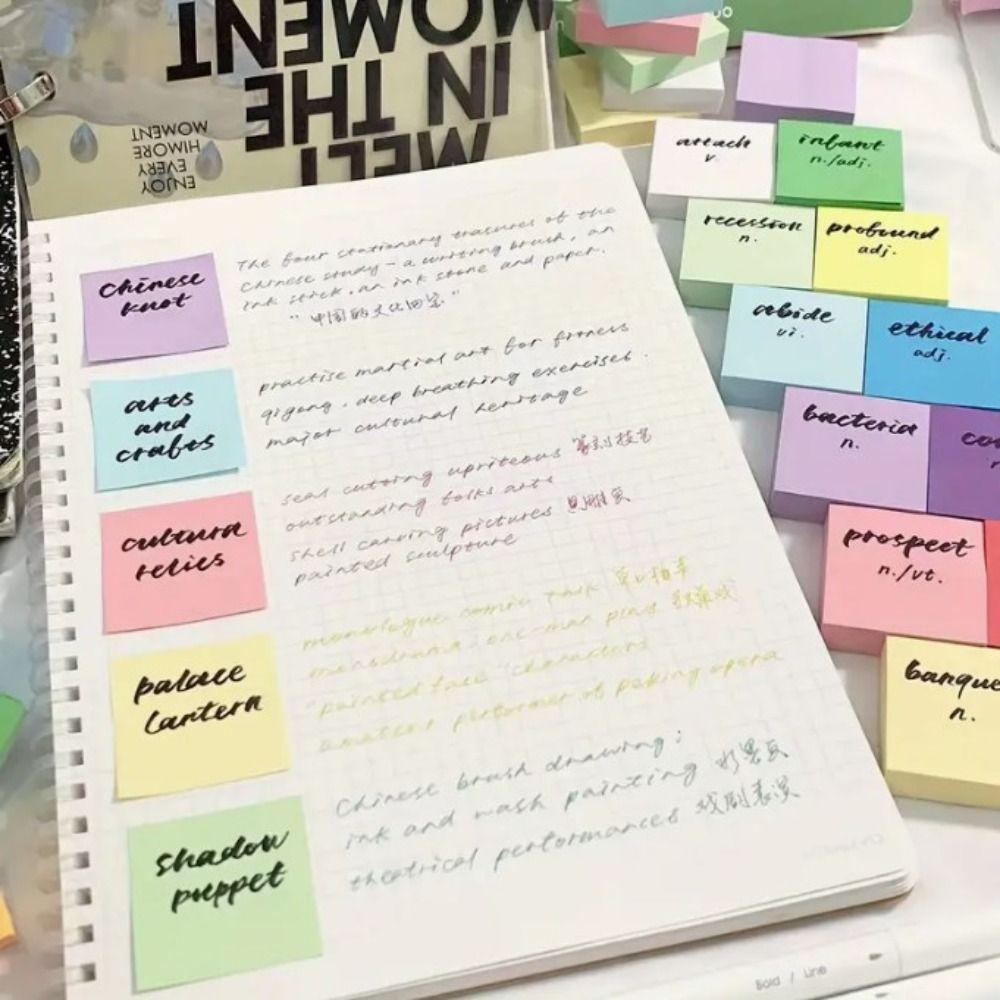 MELT
IN THE
MOMENT
ENJOY
EVERY
HIMORE
MOMENT
chinese
knot
The four stationary treasures of the
chinese study - a writing brush, an
ink stick, an ink stone and paper.
arts
and
crafts
practise martial art for fitness
qigong, deep breathing exercises.
major cultural heritage
cultura
relics
seal cutting 篆刻技艺
outstanding folks arts
shell carving pictures 贝雕
painted sculpture
palace
lantern
monologue comic talk 单口相声
monodrama; one-man play 独幕戏
"painted face" characters
amateur performer of peking opera
shadow
puppet
Chinese brush drawing;
ink and wash painting 水墨
theatrical performances 戏剧表演
attach
v.
infant
n./adj.
recession
n.
profound
adj.
abide
vi.
ethical
adj.
bacteria
n.
prospect
n./vt.
banque
n.
Bold / Line